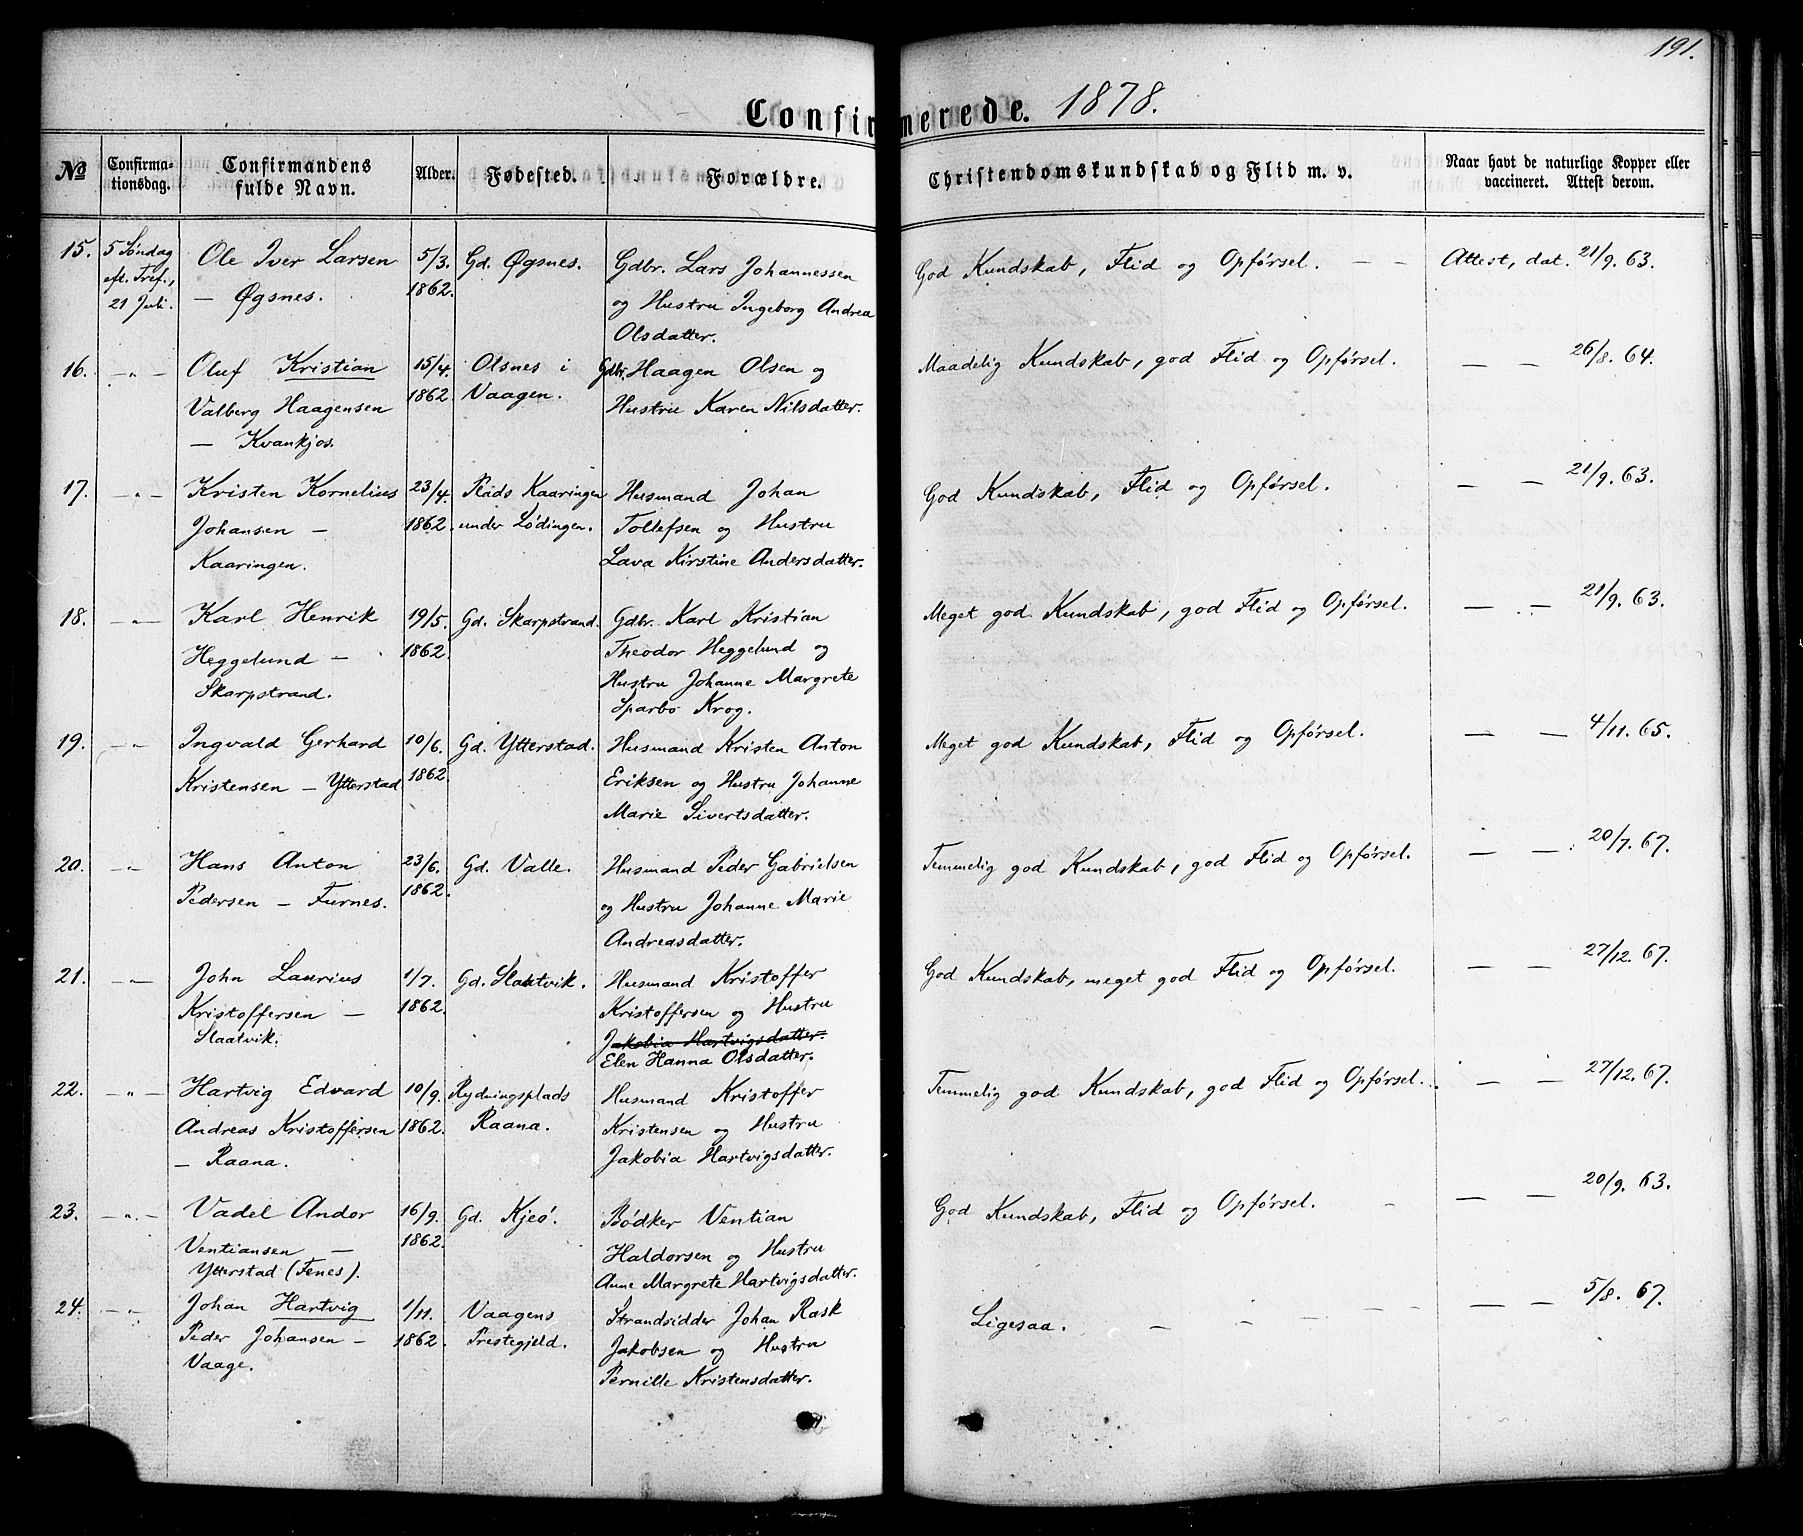 191.
Confirmerede. 1878.
No Confirmationsdag. Confirmandens fulde Navn. Alder. Fødested. Forældre. Christendomskundskab og Flid m. v. Naar havt de naturlige Kopper eller vaccineret. Attest derom.
15. 5 Søndag Ole Iver Larsen 5/3. Gd. Øgsnes. Gdbr. Lars Johannessen God Kundskab, Flid og Opførsel. — — Attest, dat. 21/9. 63.
eft. Tref., — Øgsnes. 1862. og Hustru Ingeborg Andrea
21 Juli. Olsdatter.
16. — „ — Oluf Kristian 15/4. Olsnes i Gdbr. Haagen Olsen og Maadelig Kundskab, god Flid og Opførsel. — — 26/8. 64.
Valberg Haagensen 1862. Vaagen. Hustru Karen Nilsdatter.
— Kvankjos.
17. — „ — Kristen Kornelius 23/4. Plads Kaaringen Husmand Johan God Kundskab, Flid og Opførsel. — — 21/9. 63.
Johansen — 1862. under Lødingen. Tollefsen og Hustru
Kaaringen. Lava Kirstine Andersdatter.
18. — „ — Karl Henrik 19/5. Gd. Skarpstrand. Gdbr. Karl Kristian Meget god Kundskab, god Flid og Opførsel. — — 21/9. 63.
Heggelund — 1862. Theodor Heggelund og
Skarpstrand. Hustru Johanne Margrete
Sparbo Krog.
19. — „ Ingvald Gerhard 10/6. Gd. Ytterstad. Husmand Kristen Anton Meget god Kundskab, Flid og Opførsel. — — 4/11. 65.
Kristensen — Ytterstad 1862. Eriksen og Hustru Johanne
Marie Sivertsdatter.
20. — „ — Hans Anton 23/6. Gd. Valle. Husmand Peder Gabrielsen Temmelig god Kundskab, god Flid og Opførsel. — — 20/7. 67.
Pedersen — Furnes. 1862. og Hustru Johanne Marie
Andreasdatter.
21. — „ — John Laurius 1/7. Gd. Slaatvik. Husmand Kristoffer God Kundskab, meget god Flid og Opførsel. — — 27/12. 67.
Kristoffersen — 1862. Kristoffersen og Hustru
Slaatvik. Jakobia Hartvigsdatter.
Elen Hanna Olsdatter.
22. — „ — Hartvig Edvard 10/9. Rydningsplads Husmand Kristoffer Temmelig god Kundskab, god Flid og Opførsel. — — 27/12. 67.
Andreas Kristoffersen 1862. Raana. Kristensen og Hustru
— Raana. Jakobia Hartvigsdatter.
23. — „ — Vadel Andor 16/9. Gd. Kjeø. Bødker Ventian God Kundskab, Flid og Opførsel. — — 20/9. 63.
Ventiansen — 1862. Haldorsen og Hustru
Ytterstad (Fenes). Anne Margrete Hartvigsdatter.
24. — „ Johan Hartvig 1/11. Vaagens Strandsidder Johan Rask Ligesaa. — — — — — 5/8. 67.
Peder Johansen — 1862. Prestegjeld. Jakobsen og Hustru
Vaage. Pernille Kristensdatter.